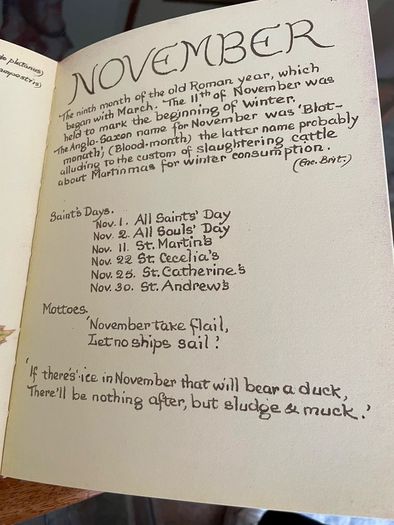 de platanus)
ampestris)
NOVEMBER
The ninth month of the old Roman year, which
began with March. The 11th of November was
held to mark the beginning of Winter.
The Anglo-Saxon name for November was 'Blot-
monath', (Blood-month) the latter name probably
alluding to the custom of slaughtering cattle
about Martinmas for winter consumption.
(Enc. Brit.)
Saint's Days.
Nov. 1. All Saints' Day
Nov. 2. All Souls' Day
Nov. 11. St. Martin's
Nov. 22 St. Cecelia's
Nov. 25. St. Catherine's
Nov. 30. St. Andrew's
Mottoes.
'November take flail,
Let no ships sail!'
'If there's ice in November that will bear a duck,
There'll be nothing after, but sludge & muck.'